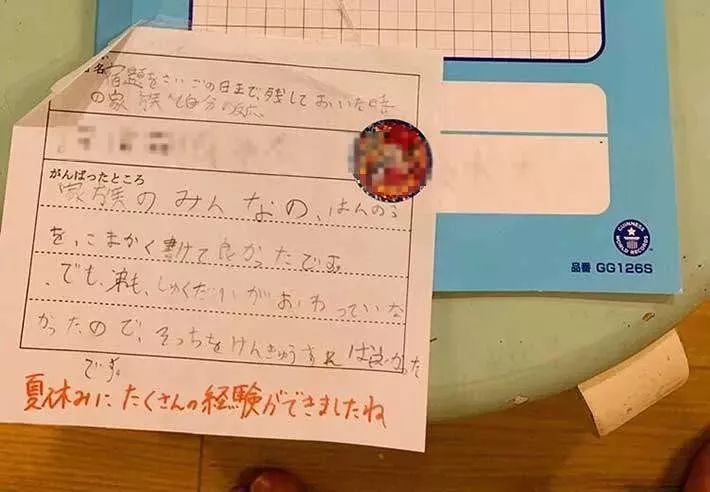 名 宿題をさいごの日まで、残しておいた時
の家族と自分の反応
がんばったところ
家族のみんなの、はんのう
を、こまかく書けて良かったです。
でも、弟も、しゅくだいがおわっていな
かったので、そっちをけんきゅうすれば良かった
です。
夏休みにたくさんの経験ができましたね
GUINNESS
WORLD RECORDS
品番 GG126S